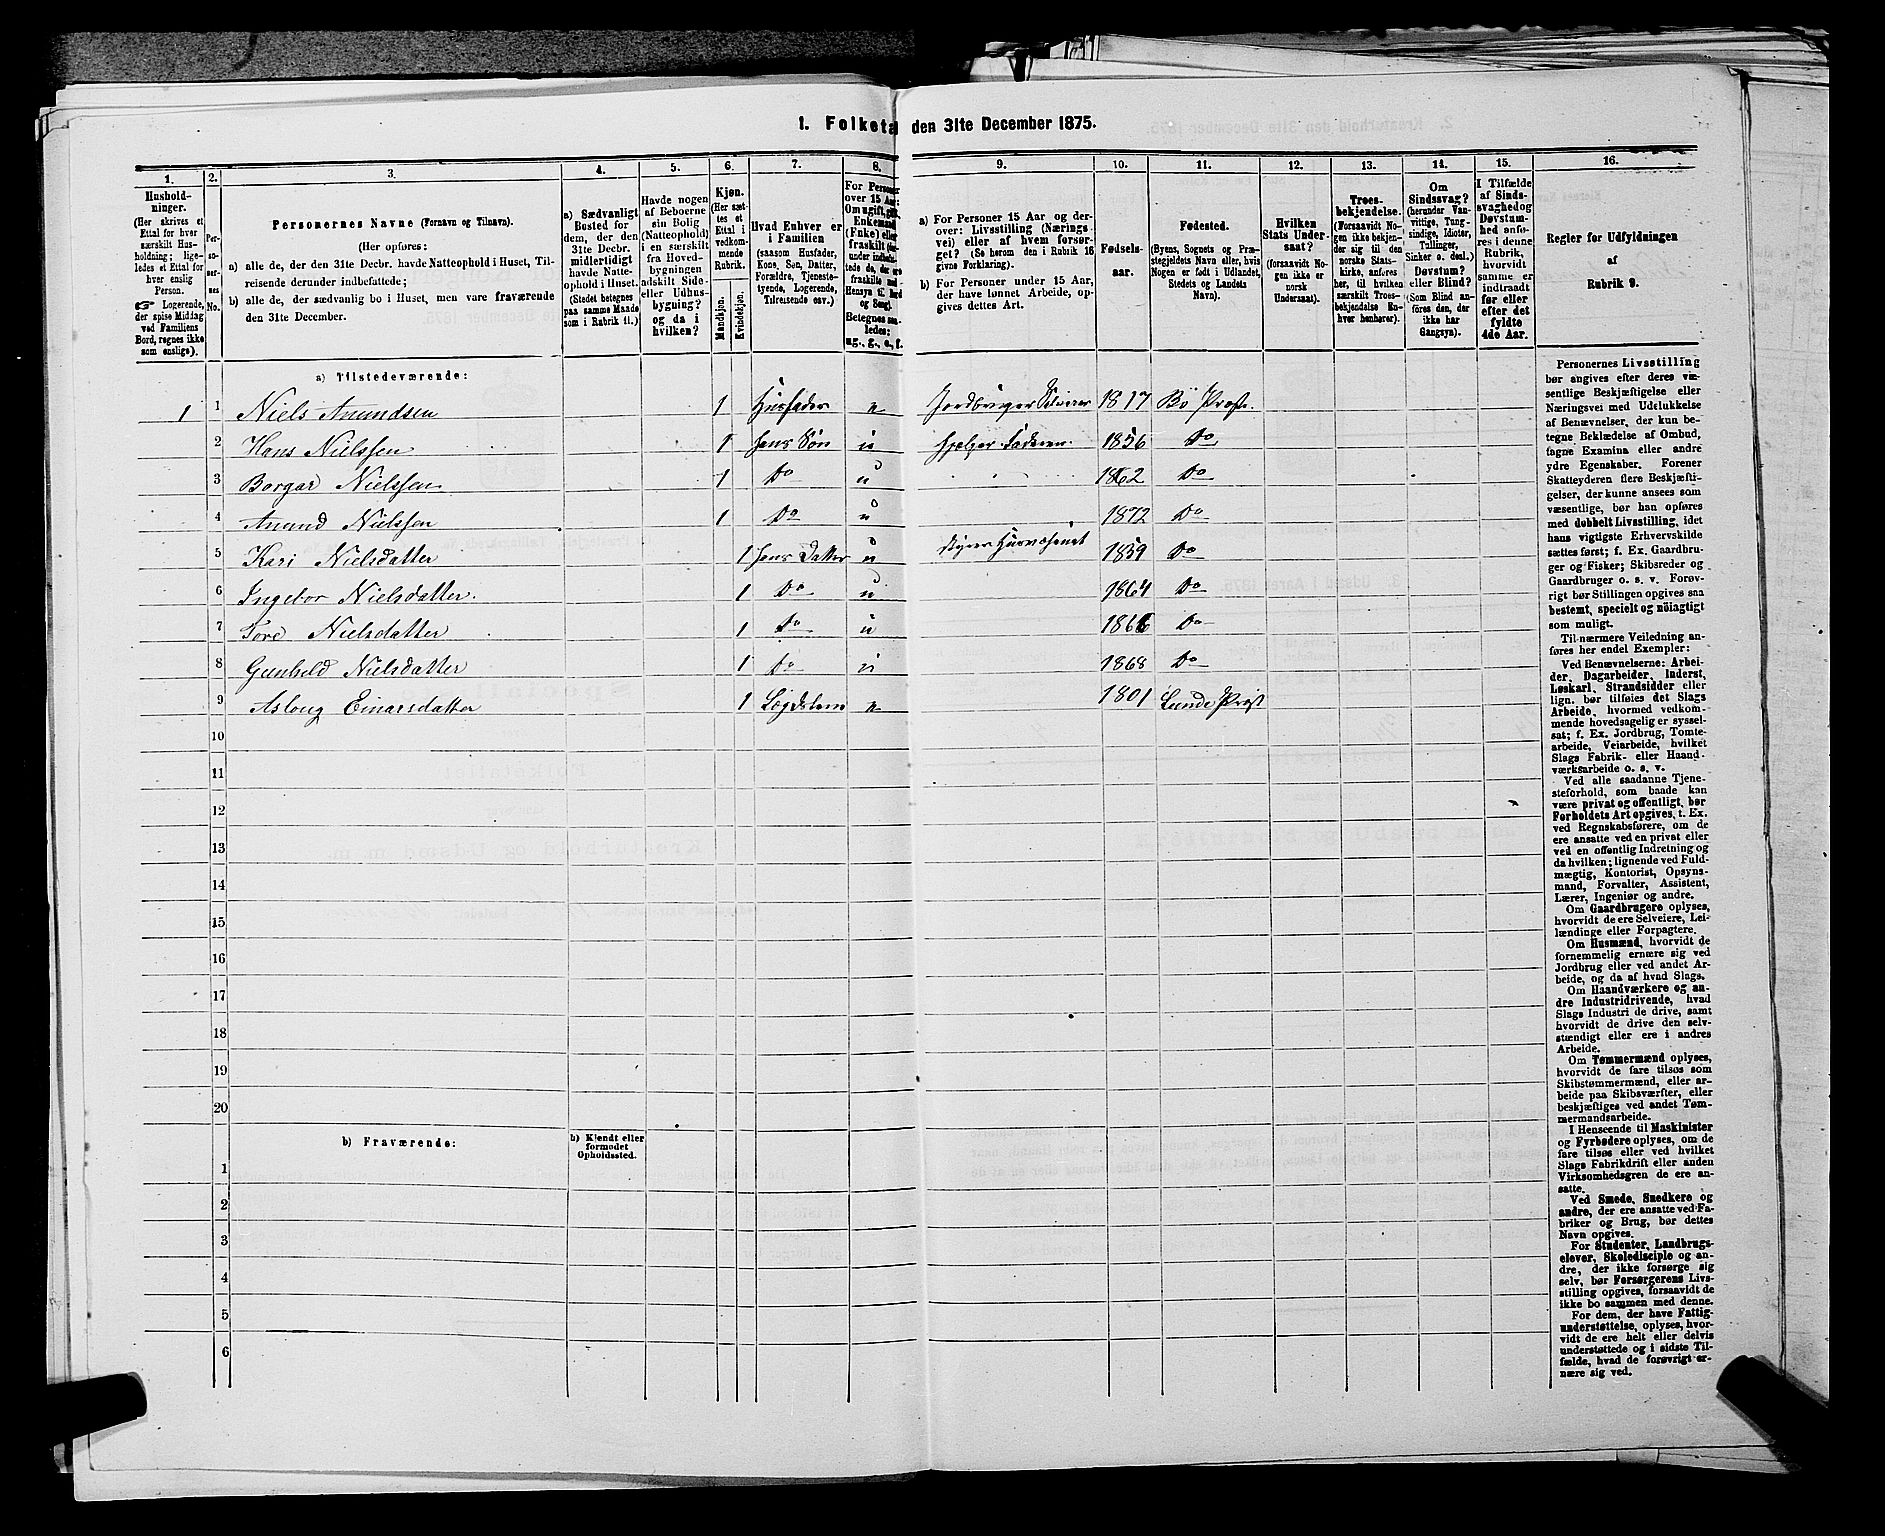 1. Folketa den 31te December 1875.
1. 2. 3. 4. 5. 6. 7. 8. 9. 10. 11. 12. 13. 14. 15. 16.
Hushold-
ninger.
(Her skrives et
Ettal for hver
særskilt Hus-
holdning; lige-
ledes et Ettal for
hver enslig
Person.
☞ Logerende,
der spise Middag
ved Familiens
Bord, regnes ikke
som enslige).
Per-
so-
ner-
nes
No.
Personernes Navne (Fornavn og Tilnavn).
(Her opføres:
a) alle de, der den 31te Decbr. havde Natteophold i Huset, Til-
reisende derunder indbefattede;
b) alle de, der sædvanlig bo i Huset, men vare fraværende
den 31te December.
a) Sædvanligt
Bosted for
dem, der den
31te Decbr.
midlertidigt
havde Natte-
ophold i Huset.
(Stedet betegnes
paa samme Maade
som i Rubrik 11.)
Havde nogen
af Beboerne
sin Bolig
(Natteophold)
i en særskilt
fra Hoved-
bygningen
adskilt Side-
eller Udhus-
bygning?
og da i
hvilken?
Kjøn.
(Her sæt-
tes et
Ettal i
vedkom-
mende
Rubrik.
Mandkjøn.
Kvindekjøn.
Hvad Enhver er
i Familien
(saasom Husfader,
Kone, Søn, Datter,
Forældre, Tjeneste-
tyende, Logerende,
Tilreisende osv.)
For Personer
over 15 Aar:
Om ugift, gift,
Enkemand
(Enke) eller
fraskilt
Betegnes saa-
ledes:
ug., g., e., f.
a) For Personer 15 Aar og der-
over: Livsstilling (Nærings-
vei) eller af hvem forsør-
get? (Se herom den i Rubrik 16
givne Forklaring).
b) For Personer under 15 Aar,
der have lønnet Arbeide, op-
gives dettes Art.
Fødsels-
aar.
Fødested.
(Byens, Sognets og Præ-
stegjeldets Navn eller, hvis
Nogen er født i Udlandet,
Stedets og Landets
Navn).
Hvilken
Stats Under-
saat?
(forsaavidt No-
gen ikke er
norsk
Undersaat).
Troes-
bekjendelse.
(Forsaavidt No-
gen ikke bekjen-
der sig til den
norske Stats-
kirke, anføres
her, til hvilken
særskilt Troes-
bekjendelse En-
hver henhører).
Om
Sindssvag?
(herunder Van-
vittige, Tung-
sindige, Idioter,
Tullinger,
Sinker o. desl.)
Døvstum?
eller Blind?
(Som Blind an-
føres den, der
ikke har
Gangsyn).
I Tilfælde
af Sinds-
svaghed og
Døvstum-
hed anfø-
res i denne
Rubrik,
hvorvidt
samme er
indtraadt
før eller
efter det
fyldte
4de Aar.
Regler for Udfyldningen
af
Rubrik 9.
a) Tilstedeværende:
1 1 Niels Anundsen 1 Husfader e Jordbruger Selveier 1817 Bö Præst.
2 Hans Nielssen 1 hans Søn u hjelper Faderen 1856 Do
3 Borgar Nielssen 1 Do u 1862 Do
4 Anund Nielssen 1 Do u 1872 Do
5 Kari Nielsdatter 1 hans Datter u styrer Husvæsenet 1859 Do
6 Ingebor Nielsdatter. 1 Do u 1864 Do
7 Tore Nielsdatter 1 Do u 1866 Do
8 Gunhild Nielsdatter 1 Do u 1868 Do
9 Asloug Einarsdatter 1 Lægdslem e 1801 Lunde Præst
10
11
12
13
14
15
16
17
18
19
20
b) Fraværende:
b) Kjendt eller
formodet
Opholdssted.
1
2
3
4
5
6
Personernes Livsstilling
bør angives efter deres væ-
sentlige Beskjæftigelse eller
Næringsvei med Udelukkelse
af Benævnelser, der kun be-
tegne Beklædelse af Ombud,
tagne Examina eller andre
ydre Egenskaber. Forener
Skatteyderen flere Beskjæfti-
gelser, der kunne ansees som
væsentlige, bør han opføres
med dobbelt Livsstilling, idet
hans vigtigste Erhvervskilde
sættes først; f. Ex. Gaardbru-
ger og Fisker; Skibsreder og
Gaardbruger o. s. v. Forøv-
rigt bør Stillingen opgives saa
bestemt, specielt og nöiagtigt
som muligt.
Til nærmere Veiledning an-
føres her endel Exempler:
Ved Benævnelserne: Arbei-
der, Dagarbeider, Inderst,
Løskarl, Strandsidder eller
lign. bør tilføies det Slags
Arbeide, hvormed vedkom-
mende hovedsagelig er syssel-
sat; f. Ex. Jordbrug, Tomte-
arbeide, Veiarbeide, hvilket
Slags Fabrik- eller Haand-
værksarbeide o. s. v.
Ved alle saadanne Tjene-
steforhold, som baade kan
være privat og offentligt, bør
Forholdets Art opgives, t. Ex.
ved Regnskabsførere, om de
ere ansatte ved en privat eller
ved en offentlig Indretning og
da hvilken; lignende ved Fuld-
mægtig, Kontorist, Opsyns-
mand, Forvalter, Assistent,
Lærer, Ingeniør og andre.
Om Gaardbrugere oplyses,
hvorvidt de ere Selveiere, Lei-
lændinge eller Forpagtere.
Om Husmænd, hvorvidt de
fornemmelig ernære sig ved
Jordbrug eller ved andet Ar-
beide, og da af hvad Slags.
Om Haandværkere og an-
dre Industridrivende, hvad
Slags Industri de drive, samt
hvorvidt de drive den selv-
stændigt eller ere i andres
Arbeide.
Om Tømmermænd oplyses,
hvorvidt de fare tilsøs som
Skibstømmermænd, eller ar-
beide paa Skibsværfter, eller
beskjæftiges ved andet Tøm-
mermandsarbeide.
I Henseende til Maskinister
og Fyrbødere oplyses, om de
fare tilsøs eller ved hvilket
Slags Fabrikdrift eller anden
Virksomhedsgren de ere an-
satte.
Ved Smede, Snedkere og
andre, der ere ansatte ved Fa-
briker og Brug, bør dettes
Navn opgives.
For Studenter, Landbrugs-
elever, Skoledisciple og an-
dre, der ikke forsørge sig
selv, bør Forsørgerens Livs-
stilling opgives, forsaavidt de
ikke bo sammen med denne.
For dem, der have Fattig-
understøttelse, oplyses, hvor-
vidt de ere helt eller delvis
understøttede og i sidste Til-
fælde, hvad de forøvrigt er-
nære sig ved.